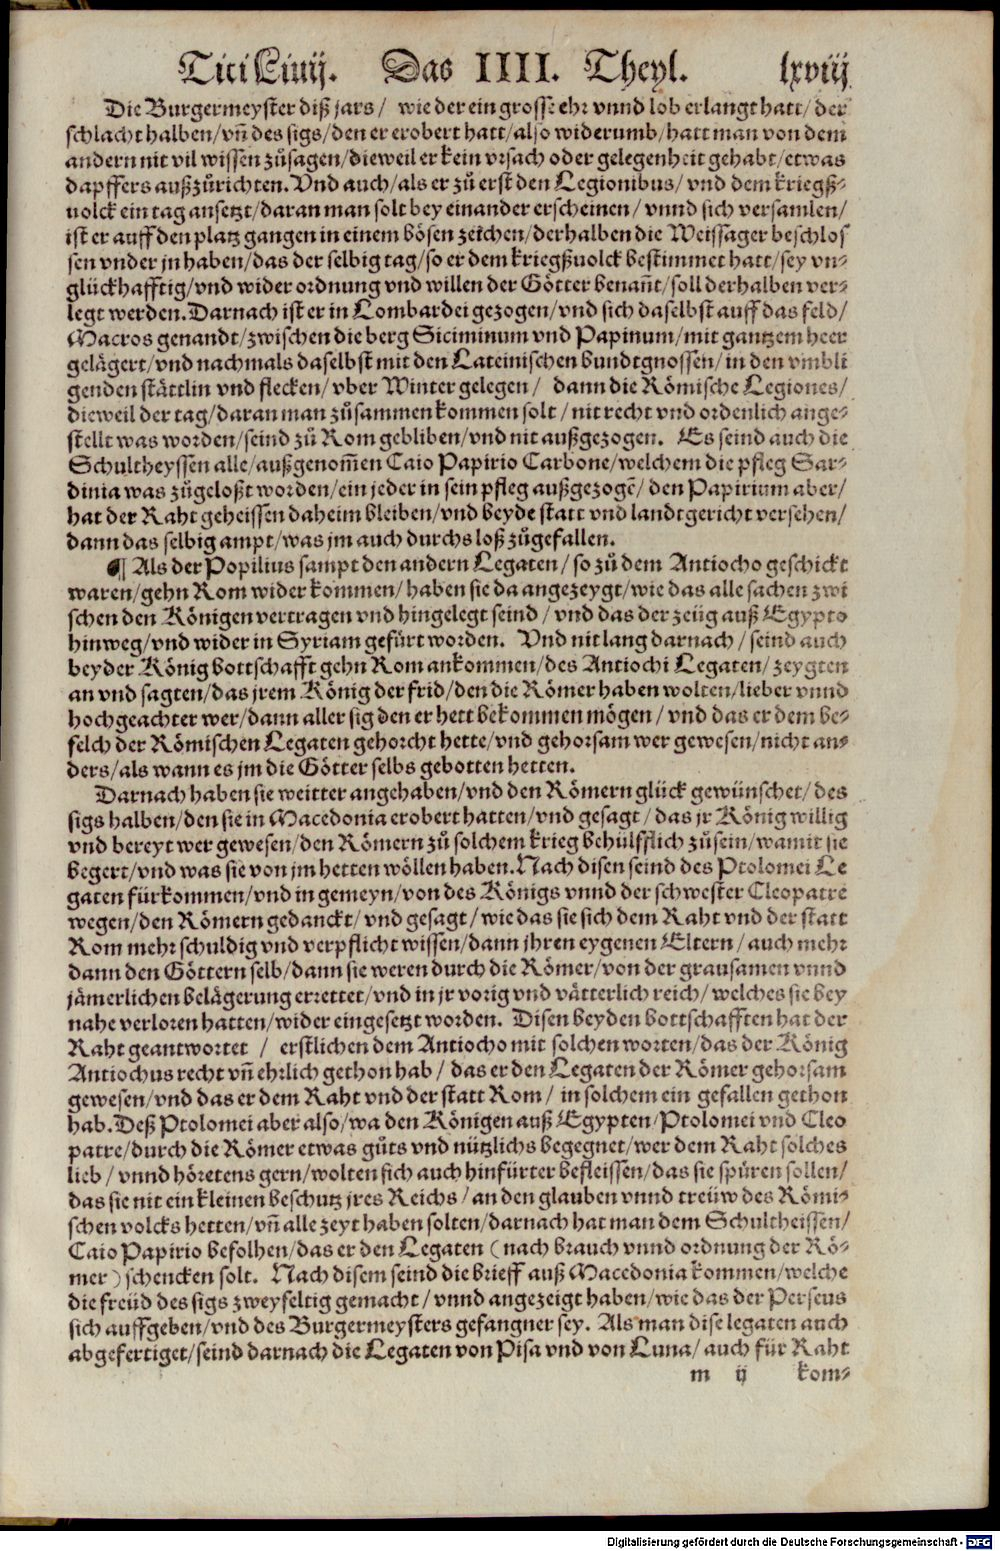 Titi Liuij. Das IIII. Theyl. lxviij
Die Burgermeyster diß jars/ wie der ein grosse ehr vnnd lob erlangt hatt/ der
schlacht halben/vñ des sigs/den er erobert hatt/also widerumb/hatt man von dem
andern nit vil wissen zůsagen/dieweil er kein vrsach oder gelegenheit gehabt/etwas
dapffers außzůrichten. Vnd auch/als er zů erst den Legionibus/ vnd dem kriegß-
uolck ein tag ansetzt/daran man solt bey einander erscheinen/ vnnd sich versamlen/
ist er auff den platz gangen in einem bösen zeichen/derhalben die Weissager beschlos
sen vnder jn haben/das der selbig tag/so er dem kriegßuolck bestimmet hatt/sey vn-
glückhafftig/vnd wider ordnung vnd willen der Götter benañt/soll derhalben ver-
legt werden. Darnach ist er in Lombardei gezogen/vnd sich daselbst auff das feld/
Macros genandt/zwischen die berg Siciminum vnd Papinum/mit gantzem heer
gelägert/vnd nachmals daselbst mit den Lateinischen bundtgnossen/in den vmbli
genden stättlin vnd flecken/vber Winter gelegen/ dann die Römische Legiones/
dieweil der tag/daran man zůsammen kommen solt/nit recht vnd ordenlich ange-
stellt was worden/seind zů Rom gebliben/vnd nit außgezogen. Es seind auch die
Schultheyssen alle/außgenom̃en Caio Papirio Carbone/welchem die pfleg Sar-
dinia was zůgeloßt worden/ein jeder in sein pfleg außgezogẽ/ den Papirium aber/
hat der Raht geheissen daheim bleiben/vnd beyde statt vnd landtgericht versehen/
dann das selbig ampt/was jm auch durchs loß zůgefallen.
¶ Als der Popilius sampt den andern Legaten/ so zů dem Antiocho geschickt
waren/gehn Rom wider kommen/haben sie da angezeygt/wie das alle sachen zwi
schen den Königen vertragen vnd hingelegt seind/ vnd das der zeüg auß Egypto
hinweg/vnd wider in Syriam gefürt worden. Vnd nit lang darnach/ seind auch
beyder König bottschafft gehn Rom ankommen/des Antiochi Legaten/ zeygten
an vnd sagten/das jrem König der frid/den die Römer haben wolten/lieber vnnd
hochgeachter wer/dann aller sig den er hett bekommen mögen/ vnd das er dem be-
felch der Römischen Legaten gehorcht hette/vnd gehorsam wer gewesen/nicht an-
ders/als wann es jm die Götter selbs gebotten hetten.
Darnach haben sie weitter angehaben/vnd den Römern glück gewünschet/ des
sigs halben/den sie in Macedonia erobert hatten/vnd gesagt/ das jr König willig
vnd bereyt wer gewesen/den Römern zů solchem krieg behülfflich zůsein/wamit sie
begert/vnd was sie von jm hetten wöllen haben. Nach disen seind des Ptolomei Le
gaten fürkommen/vnd in gemeyn/von des Königs vnnd der schwester Cleopatre
wegen/den Römern gedanckt/ vnd gesagt/ wie das sie sich dem Raht vnd der statt
Rom mehr schuldig vnd verpflicht wissen/dann jhren eygenen Eltern/ auch mehr
dann den Göttern selb/dann sie weren durch die Römer/von der grausamen vnnd
jämerlichen belägerung errettet/vnd in jr vorig vnd vätterlich reich/welches sie bey
nahe verloren hatten/wider eingesetzt worden. Disen beyden bottschafften hat der
Raht geantwortet / erstlichen dem Antiocho mit solchen worten/das der König
Antiochus recht vñ ehrlich gethon hab/ das er den Legaten der Römer gehorsam
gewesen/vnd das er dem Raht vnd der statt Rom/ in solchem ein gefallen gethon
hab. Deß Ptolomei aber also/wa den Königen auß Egypten/Ptolomei vnd Cleo
patre/durch die Römer etwas gůts vnd nützlichs begegnet/wer dem Raht solches
lieb/ vnnd höretens gern/wolten sich auch hinfürter befleissen/das sie spüren sollen/
das sie nit ein kleinen beschutz jres Reichs/ an den glauben vnnd treüw des Römi-
schen volcks hetten/vñ alle zeyt haben solten/darnach hat man dem Schultheissen/
Caio Papirio befolhen/das er den Legaten (nach brauch vnnd ordnung der Rö-
mer) schencken solt. Nach disem seind die brieff auß Macedonia kommen/welche
die freüd des sigs zweyfeltig gemacht/ vnnd angezeigt haben/wie das der Perseus
sich auffgeben/vnd des Burgermeysters gefangner sey. Als man dise legaten auch
abgefertiget/seind darnach die Legaten von Pisa vnd von Luna/auch für Raht
m ij kom-
Digitalisierung gefördert durch die Deutsche Forschungsgemeinschaft - DFG